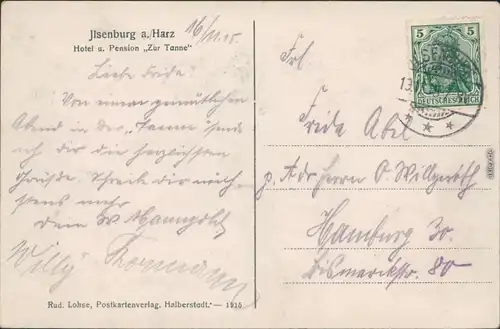 Jlsenburg a./Harz
Hotel u. Pension „Zur Tanne"
16/11.15.
Liebe Frida!
Von einem gemütlichen
Abend in der „Tanne" sende
ich dir die herzlichsten
Grüße. Schreibe dir nächstens mehr
dein W. Manngold
Willy Thormann
Rud. Lohse, Postkartenverlag, Halberstadt. — 1915
5 5
DEUTSCHES REICH
Frl.
Freda Abel
p. Adr Herrn O. Willgeroth
Hamburg 30.
Bismarckstr. 80